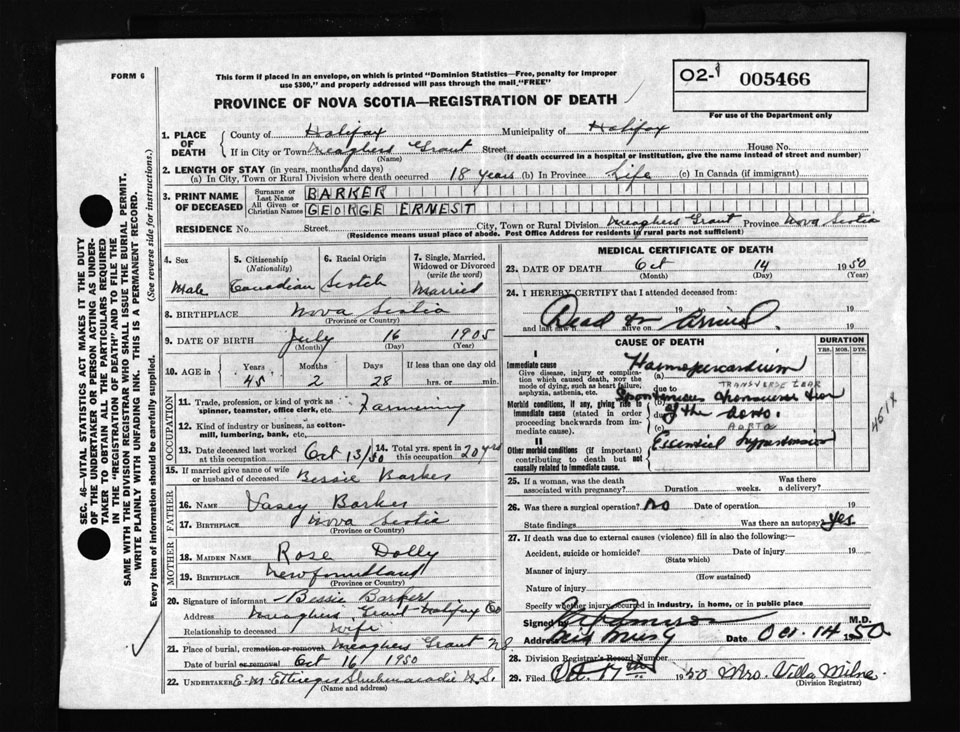 FORM 6
This form if placed in an envelope, on which is printed "Dominion Statistics—Free, penalty for improper
use $300," and properly addressed will pass through the mail "FREE"
PROVINCE OF NOVA SCOTIA—REGISTRATION OF DEATH
02-1 005466
For use of the Department only
1. PLACE OF DEATH County of Halifax Municipality of Halifax
If in City or Town Meaghers Grant Street House No.
(Name) (If death occurred in a hospital or institution, give the name instead of street and number)
2. LENGTH OF STAY (in years, months and days)
(a) In City, Town or Rural Division where death occurred 18 years (b) In Province Life (c) In Canada (if immigrant)
3. PRINT NAME OF DECEASED Surname or Last Name BARKER
All Given or Christian Names GEORGE ERNEST
RESIDENCE No. Street City, Town or Rural Division Meaghers Grant Province Nova Scotia
(Residence means usual place of abode. Post Office Address for residents in rural parts not sufficient)
4. Sex Male
5. Citizenship (Nationality) Canadian
6. Racial Origin Scotch
7. Single, Married, Widowed or Divorced (write the word) Married
8. BIRTHPLACE Nova Scotia
(Province or Country)
9. DATE OF BIRTH July 16 1905
(Month) (Day) (Year)
10. AGE in Years 45 Months 2 Days 28 If less than one day old hrs. or min.
OCCUPATION
11. Trade, profession, or kind of work as spinner, teamster, office clerk, etc. Farming
12. Kind of industry or business, as cotton-mill, lumbering, bank, etc.
13. Date deceased last worked at this occupation Oct 13/50 14. Total yrs. spent in this occupation 20 yrs
15. If married give name of wife or husband of deceased Bessie Barker
FATHER
16. NAME Vasey Barker
17. BIRTHPLACE Nova Scotia
(Province or Country)
MOTHER
18. MAIDEN NAME Rose Dolly
19. BIRTHPLACE Newfoundland
(Province or Country)
20. Signature of informant Bessie Barker
Address Meaghers Grant Halifax Co
Relationship to deceased Wife
21. Place of burial, cremation or removal Meaghers Grant NS
Date of burial or removal Oct 16 1950
22. UNDERTAKER E-M Ettinger Shubenacadie N.S.
(Name and address)
MEDICAL CERTIFICATE OF DEATH
23. DATE OF DEATH Oct 14 1950
(Month) (Day) (Year)
24. I HEREBY CERTIFY that I attended deceased from:
19 19
and last saw h alive on 19
Dead on Arrival.
CAUSE OF DEATH
DURATION
YRS. MOS. DYS.
I
Immediate cause
Give disease, injury or complication which caused death, not the mode of dying, such as heart failure, asphyxia, asthenia, etc.
(a) Haemopericardium
due to
TRANSVERSE TEAR
Morbid conditions, if any, giving rise to immediate cause (stated in order proceeding backwards from immediate cause).
(b) Spontaneous transverse tear
due to
of the aorta.
(c) AORTA
II
Other morbid conditions (if important) contributing to death but not causally related to immediate cause.
Essential hypertension
451X
25. If a woman, was the death associated with pregnancy? Duration weeks. Was there a delivery?
26. Was there a surgical operation? No Date of operation 19
State findings Was there an autopsy? Yes
27. If death was due to external causes (violence) fill in also the following:—
Accident, suicide or homicide? Date of injury 19
(State which)
Manner of injury
(How sustained)
Nature of injury
Specify whether injury occurred in industry, in home, or in public place
Signed by M.D.
Address Date Oct. 14 1950
28. Division Registrar's Record Number
29. Filed Oct. 17th 1950 Mrs. Villa Milne
(Division Registrar)
SEC. 46—VITAL STATISTICS ACT MAKES IT THE DUTY
OF THE UNDERTAKER OR PERSON ACTING AS UNDER-
TAKER TO OBTAIN ALL THE PARTICULARS REQUIRED
IN THE "REGISTRATION OF DEATH" AND TO FILE THE
SAME WITH THE DIVISION REGISTRAR WHO SHALL ISSUE THE BURIAL PERMIT.
WRITE PLAINLY WITH UNFADING INK. THIS IS A PERMANENT RECORD.
Every item of information should be carefully supplied. (See reverse side for instructions.)